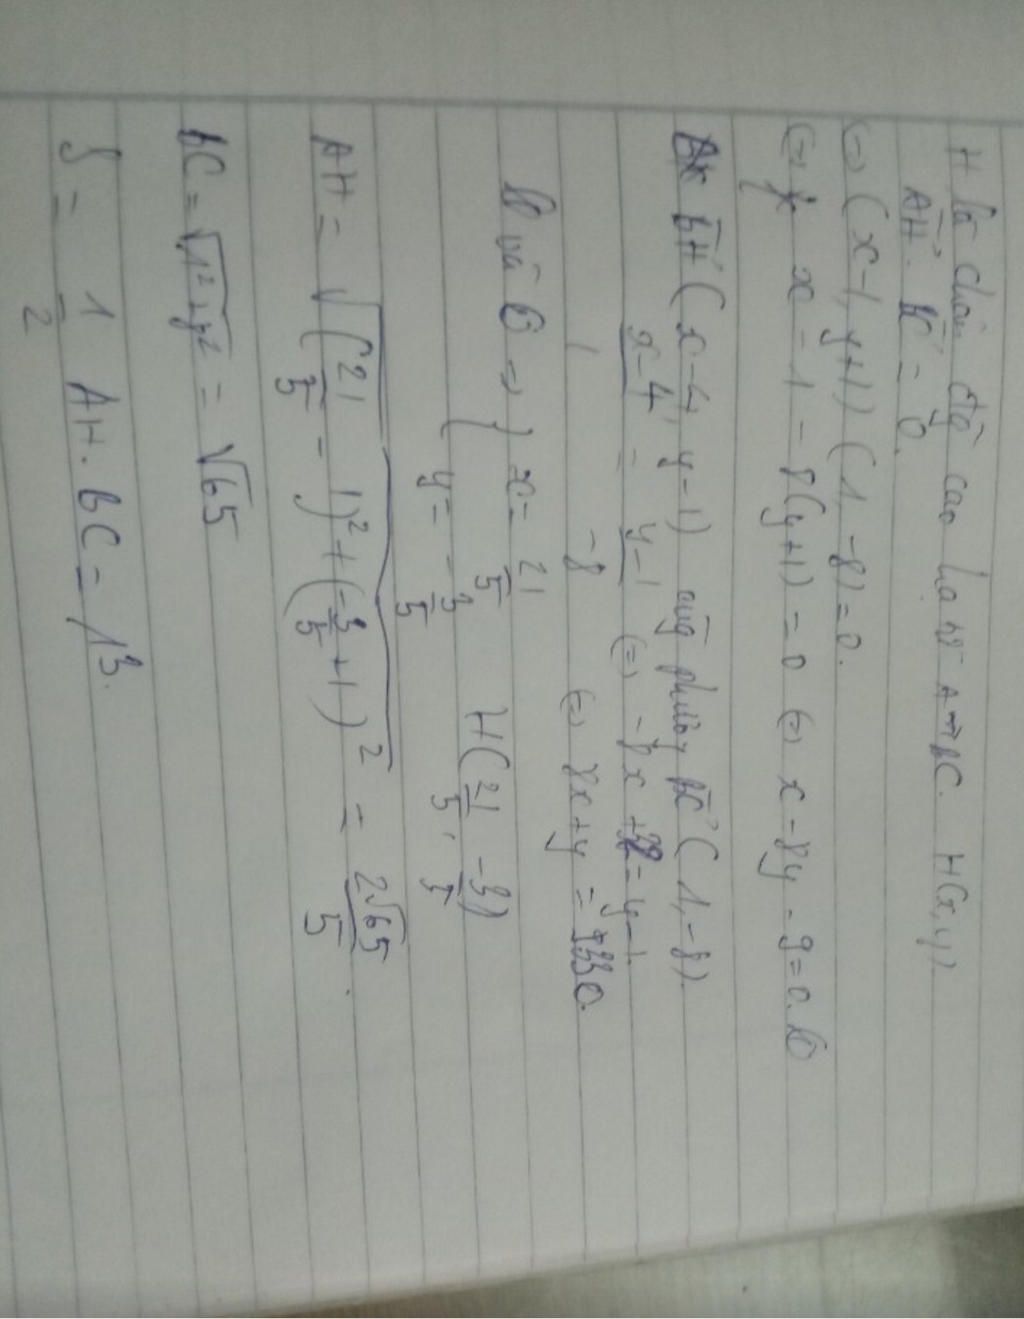 H là chân đg cao hạ từ A → BC. H(x,y)
AH. BC = 0.
(=) (x-1, y+1) (1, -8) = 0.
(=) x - 1 - 8(y+1) = 0 (=) x - 8y - 9 = 0. ①
BH (x-4, y-1) cùng phương BC (1, -8).
x-4/1 = y-1/-8 (=) -8x + 32 = y-1.
(=) 8x + y = 33
và ① => { x = 21/5
y = -3/5 H(21/5, -3/5)
AH = √(21/5 - 1)² + (-3/5 + 1)² = 2√65/5.
BC = √1² + 8² = √65
S = 1/2 AH. BC = 13.